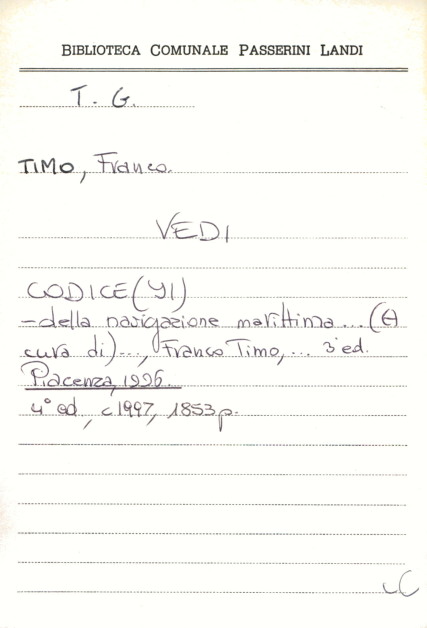 BIBLIOTECA COMUNALE PASSERINI LANDI
T. G.
TIMO, Franco.
VEDI
CODICE (
- della navigazione marittima ... (A
cura di) ..., Franco Timo, ... 3ª ed.
Piacenza, 1996.
4° ed, c1997, 1853 p.